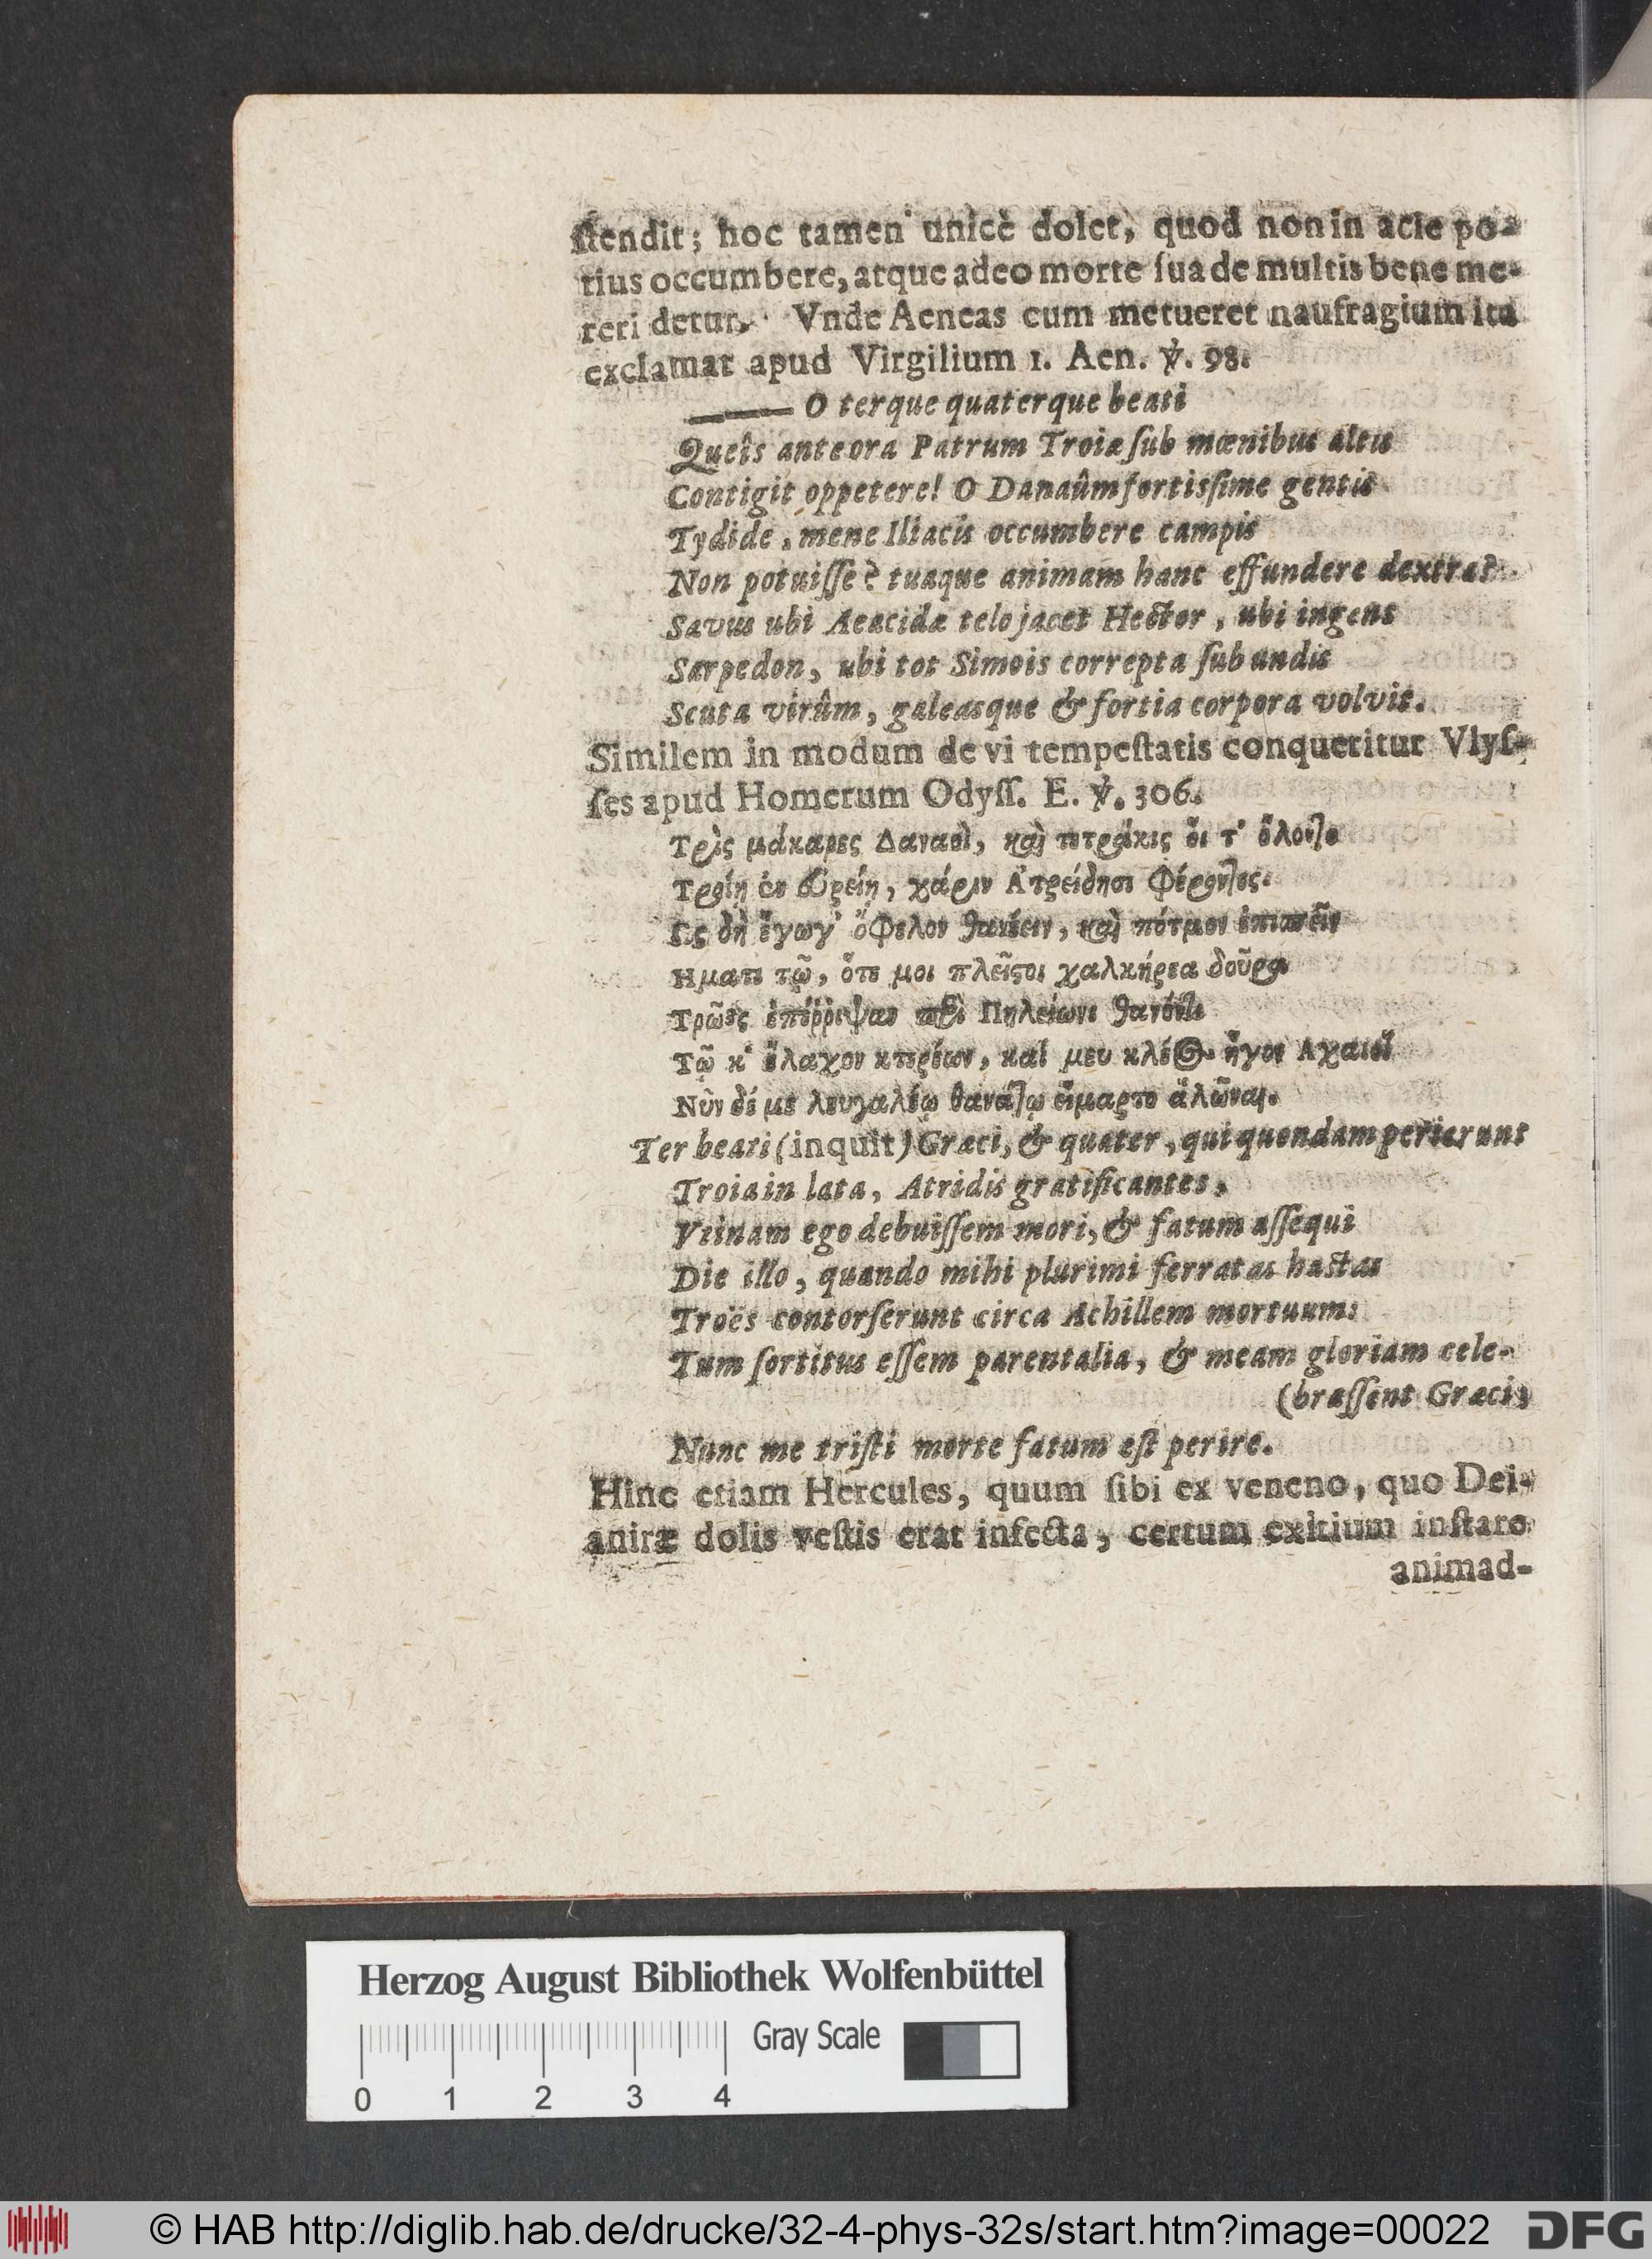 ſtendit; hoc tamen unicè dolet, quod non in acie po-
tius occumbere, atque adeo morte ſua de multis bene me-
reri detur. Vnde Aeneas cum metueret naufragium ita
exclamat apud Virgilium 1. Aen. ℣. 98.
—— O terque quaterque beati
Queîs ante ora Patrum Troiæ ſub mœnibus altis
Contigit oppetere! O Danaûm fortisſime gentis
Tydide, mene Iliacis occumbere campis
Non potuiſſe? tuaque animam hanc effundere dextra?
Sævus ubi Aeacidæ telo jacet Hector, ubi ingens
Sarpedon, ubi tot Simois correpta ſub undis
Scuta virûm, galeasque & fortia corpora volvit.
Similem in modum de vi tempeſtatis conqueritur Vlyſ-
ſes apud Homerum Odyſſ. E. ℣. 306.
Τρὶς μάκαρες Δαναοὶ, καὶ τετράκις ὅι τ' ὄλοντο
Τροίῃ ἐν εὐρείῃ, χάριν Ἀτρείδῃσι φέροντες.
Ως δὴ ἔγωγ' ὄφελον θανέειν, καὶ πότμον ἐπισπεῖν
Ηματι τῷ, ὅτε μοι πλεῖςοι χαλκήρεα δοῦρα
Τρῶες ἐπέῤῥιψαν περὶ Πηλείωνι θανόντι
Τῷ κ' ἔλαχον κτερέων, καί μευ κλέος ἦγον Αχαιοί
Νῦν δέ με λευγαλέῳ θανάτῳ εἵμαρτο ἁλῶναι.
Ter beati (inquit) Græci, & quater, qui quondam perierunt
Troia in lata, Atridis gratificantes,
Vtinam ego debuiſſem mori, & fatum aſſequi
Die illo, quando mihi plurimi ferratas hastas
Troës contorſerunt circa Achillem mortuum:
Tum ſortitus eſſem parentalia, & meam gloriam cele-
(braſſent Græci;
Nunc me triſti morte fatum eſt perire.
Hinc etiam Hercules, quum ſibi ex veneno, quo Dei-
aniræ dolis veſtis erat infecta, certum exitium inſtare
animad-
Herzog August Bibliothek Wolfenbüttel
Gray Scale
0 1 2 3 4
© HAB http://diglib.hab.de/drucke/32-4-phys-32s/start.htm?image=00022
DFG